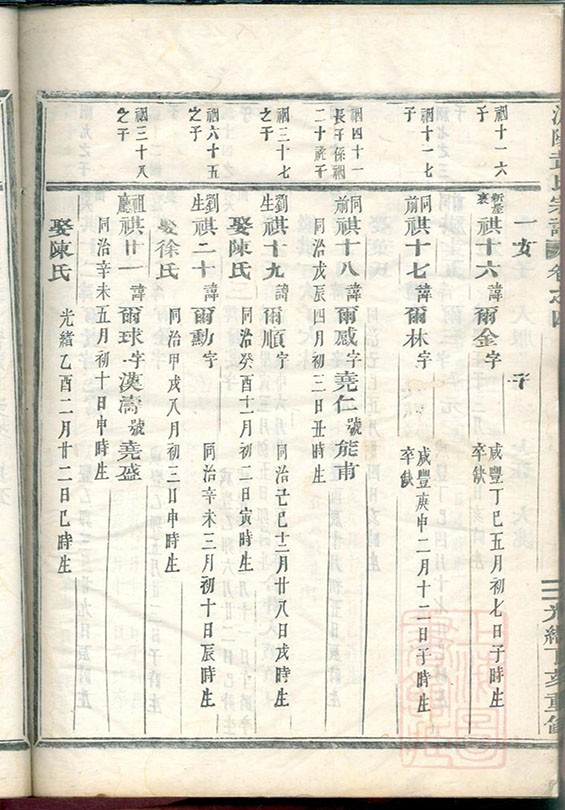 宗譜 卷之四
光緒丁亥重修
一女 子
祠十一六子
新屋裏 祺十六 諱爾金 字
咸豐丁巳五月初七日子時生
卒缺
祠十一七子
同前 祺十七 諱爾林 字
咸豐庚申二月十二日子時生
卒缺
祠四十一長子係祠二十祧子
同前 祺十八 諱爾感 字堯仁 號能甫
同治戊辰四月初三日丑時生
祠三十七之子
劉生 祺十九 諱爾順 字
同治己巳十二月廿八日戌時生
娶陳氏
同治癸酉十一月初二日寅時生
祠六十五之子
劉生 祺二十 諱爾勳 字
同治辛未三月初十日辰時生
娶徐氏
同治甲戌八月初三日申時生
祠三十八之子
祖廳 祺廿一 諱爾球 字漢濤 號堯盛
同治辛未五月初十日申時生
娶陳氏
光緒乙酉二月廿二日巳時生